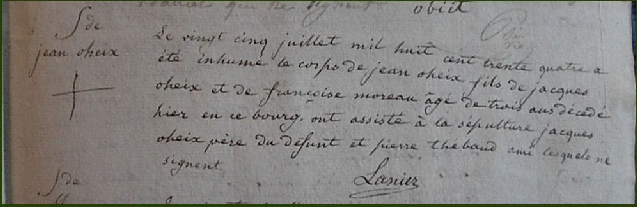 obiit
S de
jean oheix
Le vingt cinq juillet mil huit cent trente quatre a
été inhumé le corps de jean oheix fils de jacques
oheix et de françoise moreau âgé de trois ans décédé
hier en ce bourg, ont assisté à la sépulture jacques
oheix père du défunt et pierre thebaud ami lesquels ne
signent
Lanier
S de